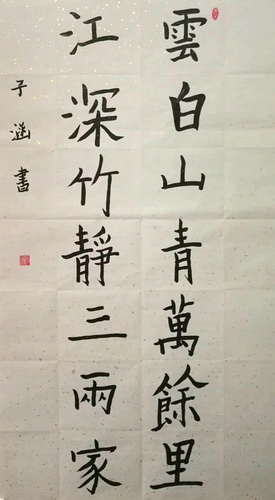 雲白山青萬餘里
江深竹靜三兩家
子涵書